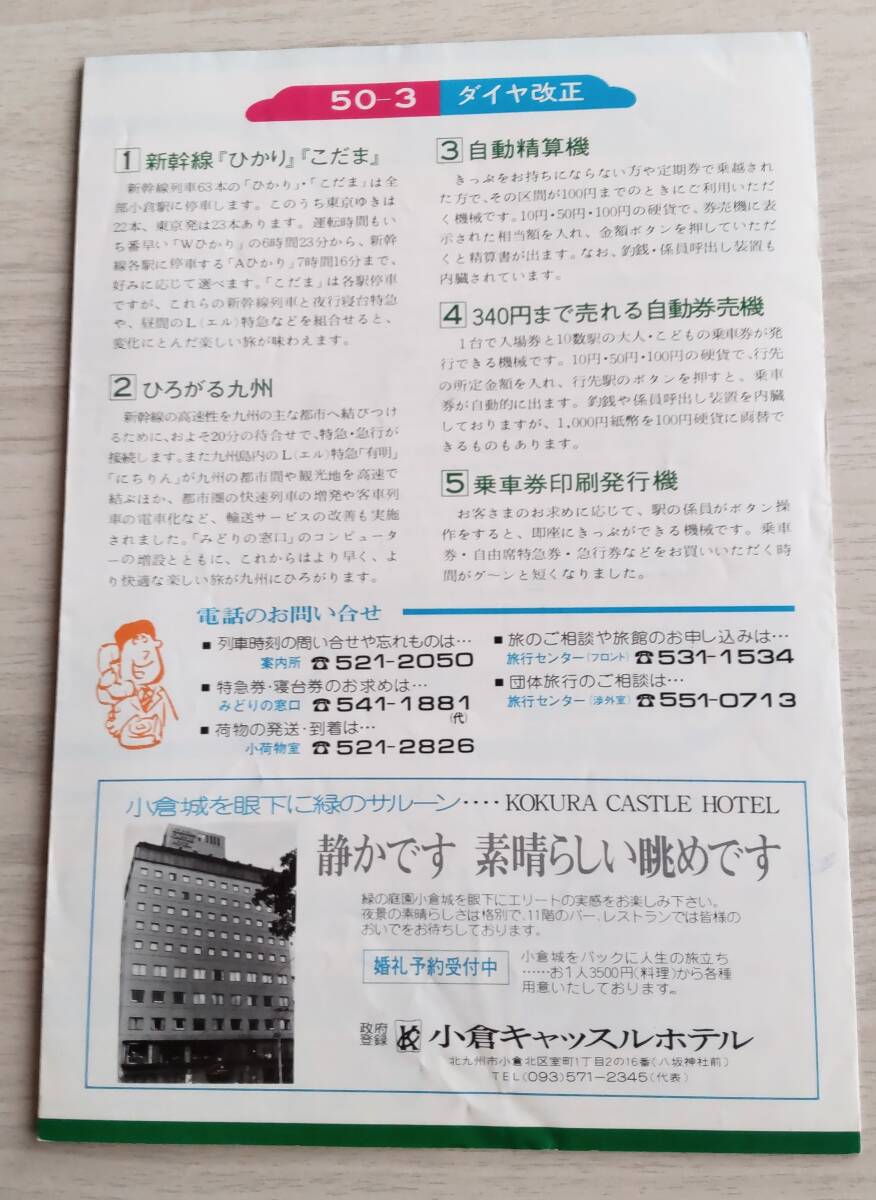 50-3 ダイヤ改正
1 新幹線『ひかり』『こだま』
新幹線列車63本の「ひかり」・「こだま」は全
部小倉駅に停車します。このうち東京ゆきは
22本、東京発は23本あります。運転時間もい
ち番早い「Wひかり」の6時間23分から、新幹
線各駅に停車する「Aひかり」7時間16分まで、
好みに応じて選べます。「こだま」は各駅停車
ですが、これらの新幹線列車と夜行寝台特急
や、昼間のL(エル)特急などを組合せると、
変化にとんだ楽しい旅が味わえます。
2 ひろがる九州
新幹線の高速性を九州の主な都市へ結びつけ
るために、およそ20分の待合せで、特急・急行が
接続します。また九州島内のL(エル)特急「有明」
「にちりん」が九州の都市間や観光地を高速で
結ぶほか、都市圏の快速列車の増発や客車列
車の電車化など、輸送サービスの改善も実施
されました。「みどりの窓口」のコンピュータ
ーの増設とともに、これからはより早く、よ
り快適な楽しい旅が九州にひろがります。
3 自動精算機
きっぷをお持ちにならない方や定期券で乗越され
た方で、その区間が100円までのときにご利用いただ
く機械です。10円・50円・100円の硬貨で、券売機に表
示された相当額を入れ、金額ボタンを押していただ
くと精算書が出ます。なお、釣銭・係員呼出し装置も
内蔵されています。
4 340円まで売れる自動券売機
1台で入場券と10数駅の大人・こどもの乗車券が発
行できる機械です。10円・50円・100円の硬貨で、行先
の所定金額を入れ、行先駅のボタンを押すと、乗車
券が自動的に出ます。釣銭や係員呼出し装置を内蔵
しておりますが、1,000円紙幣を100円硬貨に両替で
きるものもあります。
5 乗車券印刷発行機
お客さまのお求めに応じて、駅の係員がボタン操
作をすると、即座にきっぷができる機械です。乗車
券・自由席特急券・急行券などをお買いいただく時
間がグーンと短くなりました。
電話のお問い合せ
■列車時刻の問い合せや忘れものは…
案内所 ☎521-2050
■特急券・寝台券のお求めは…
みどりの窓口 ☎541-1881
(代)
■荷物の発送・到着は…
小荷物室 ☎521-2826
■旅のご相談や旅館のお申し込みは…
旅行センター(フロント) ☎531-1534
■団体旅行のご相談は…
旅行センター(渉外室) ☎551-0713
小倉城を眼下に緑のサルーン････KOKURA CASTLE HOTEL
静かです 素晴らしい眺めです
緑の庭園小倉城を眼下にエリートの実感をお楽しみ下さい。
夜景の素晴らしさは格別で、11階のバー、レストランでは皆様の
おいでをお待ちしております。
婚礼予約受付中
小倉城をバックに人生の旅立ち
……お1人3500円(料理)から各種
用意いたしております。
政府
登録 K 小倉キャッスルホテル
北九州市小倉北区室町1丁目2の16番(八坂神社前)
TEL(093)571-2345(代表)